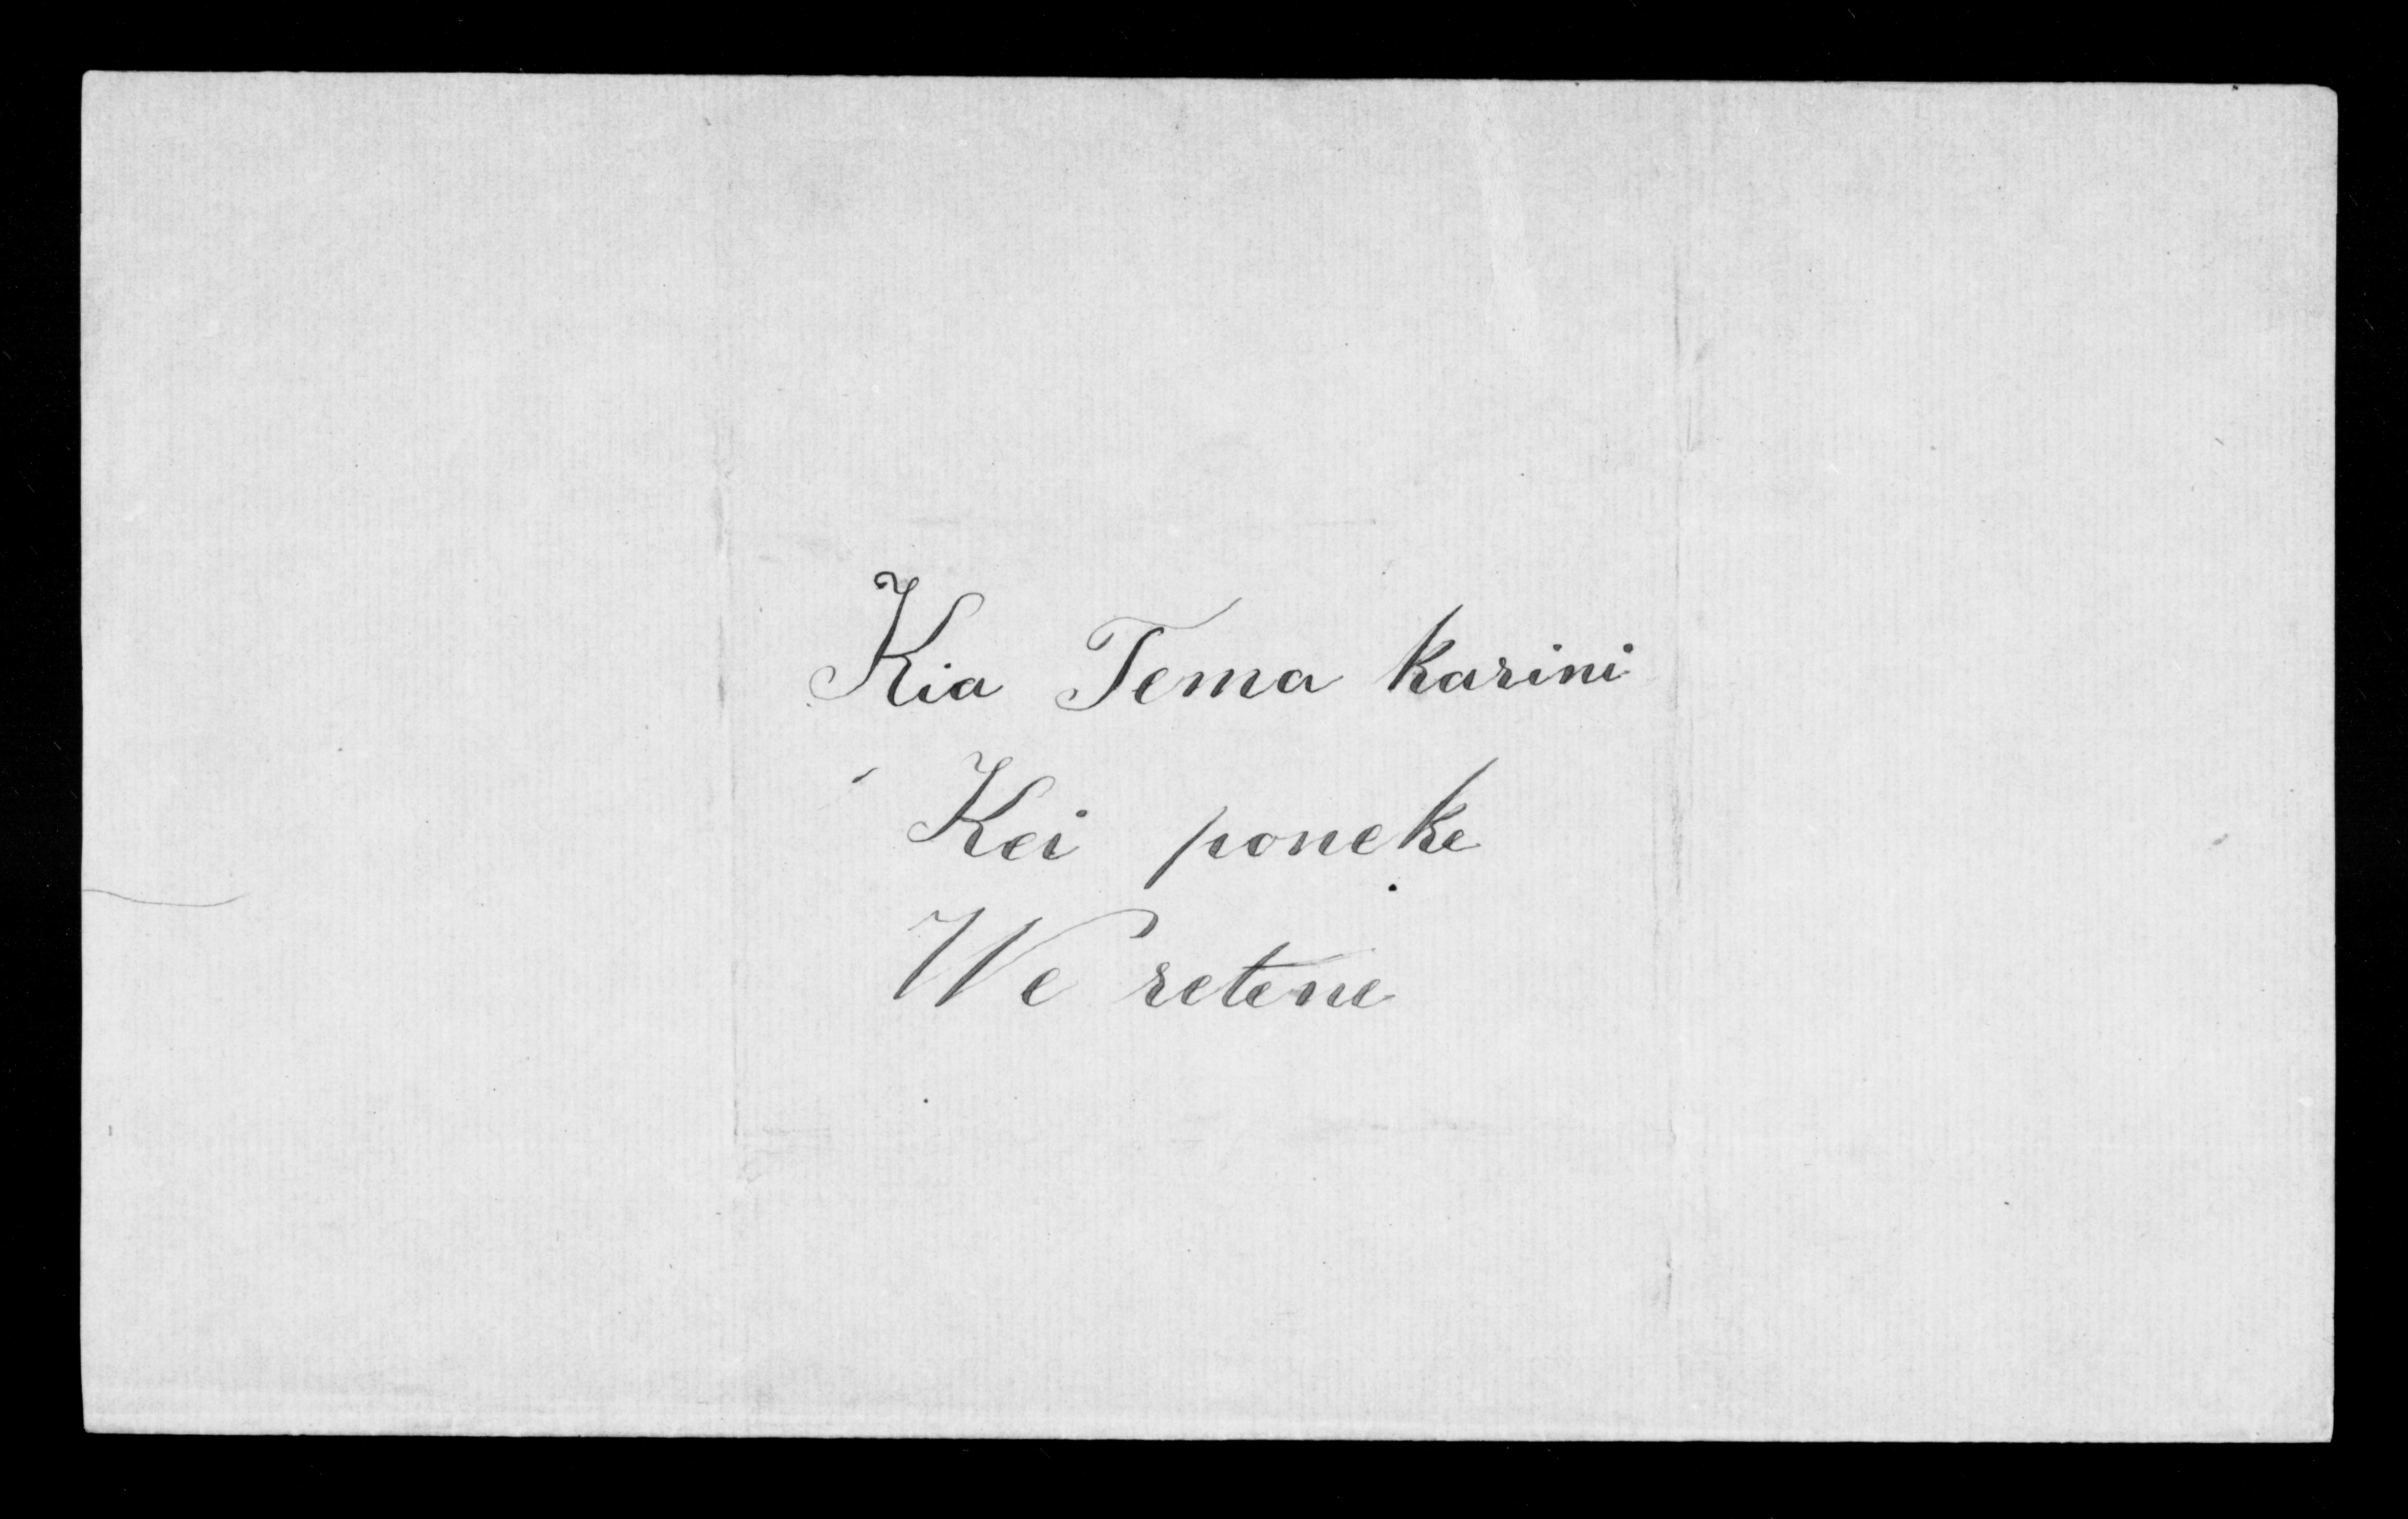 Kia Tema Karini
Kei poneke
We retene